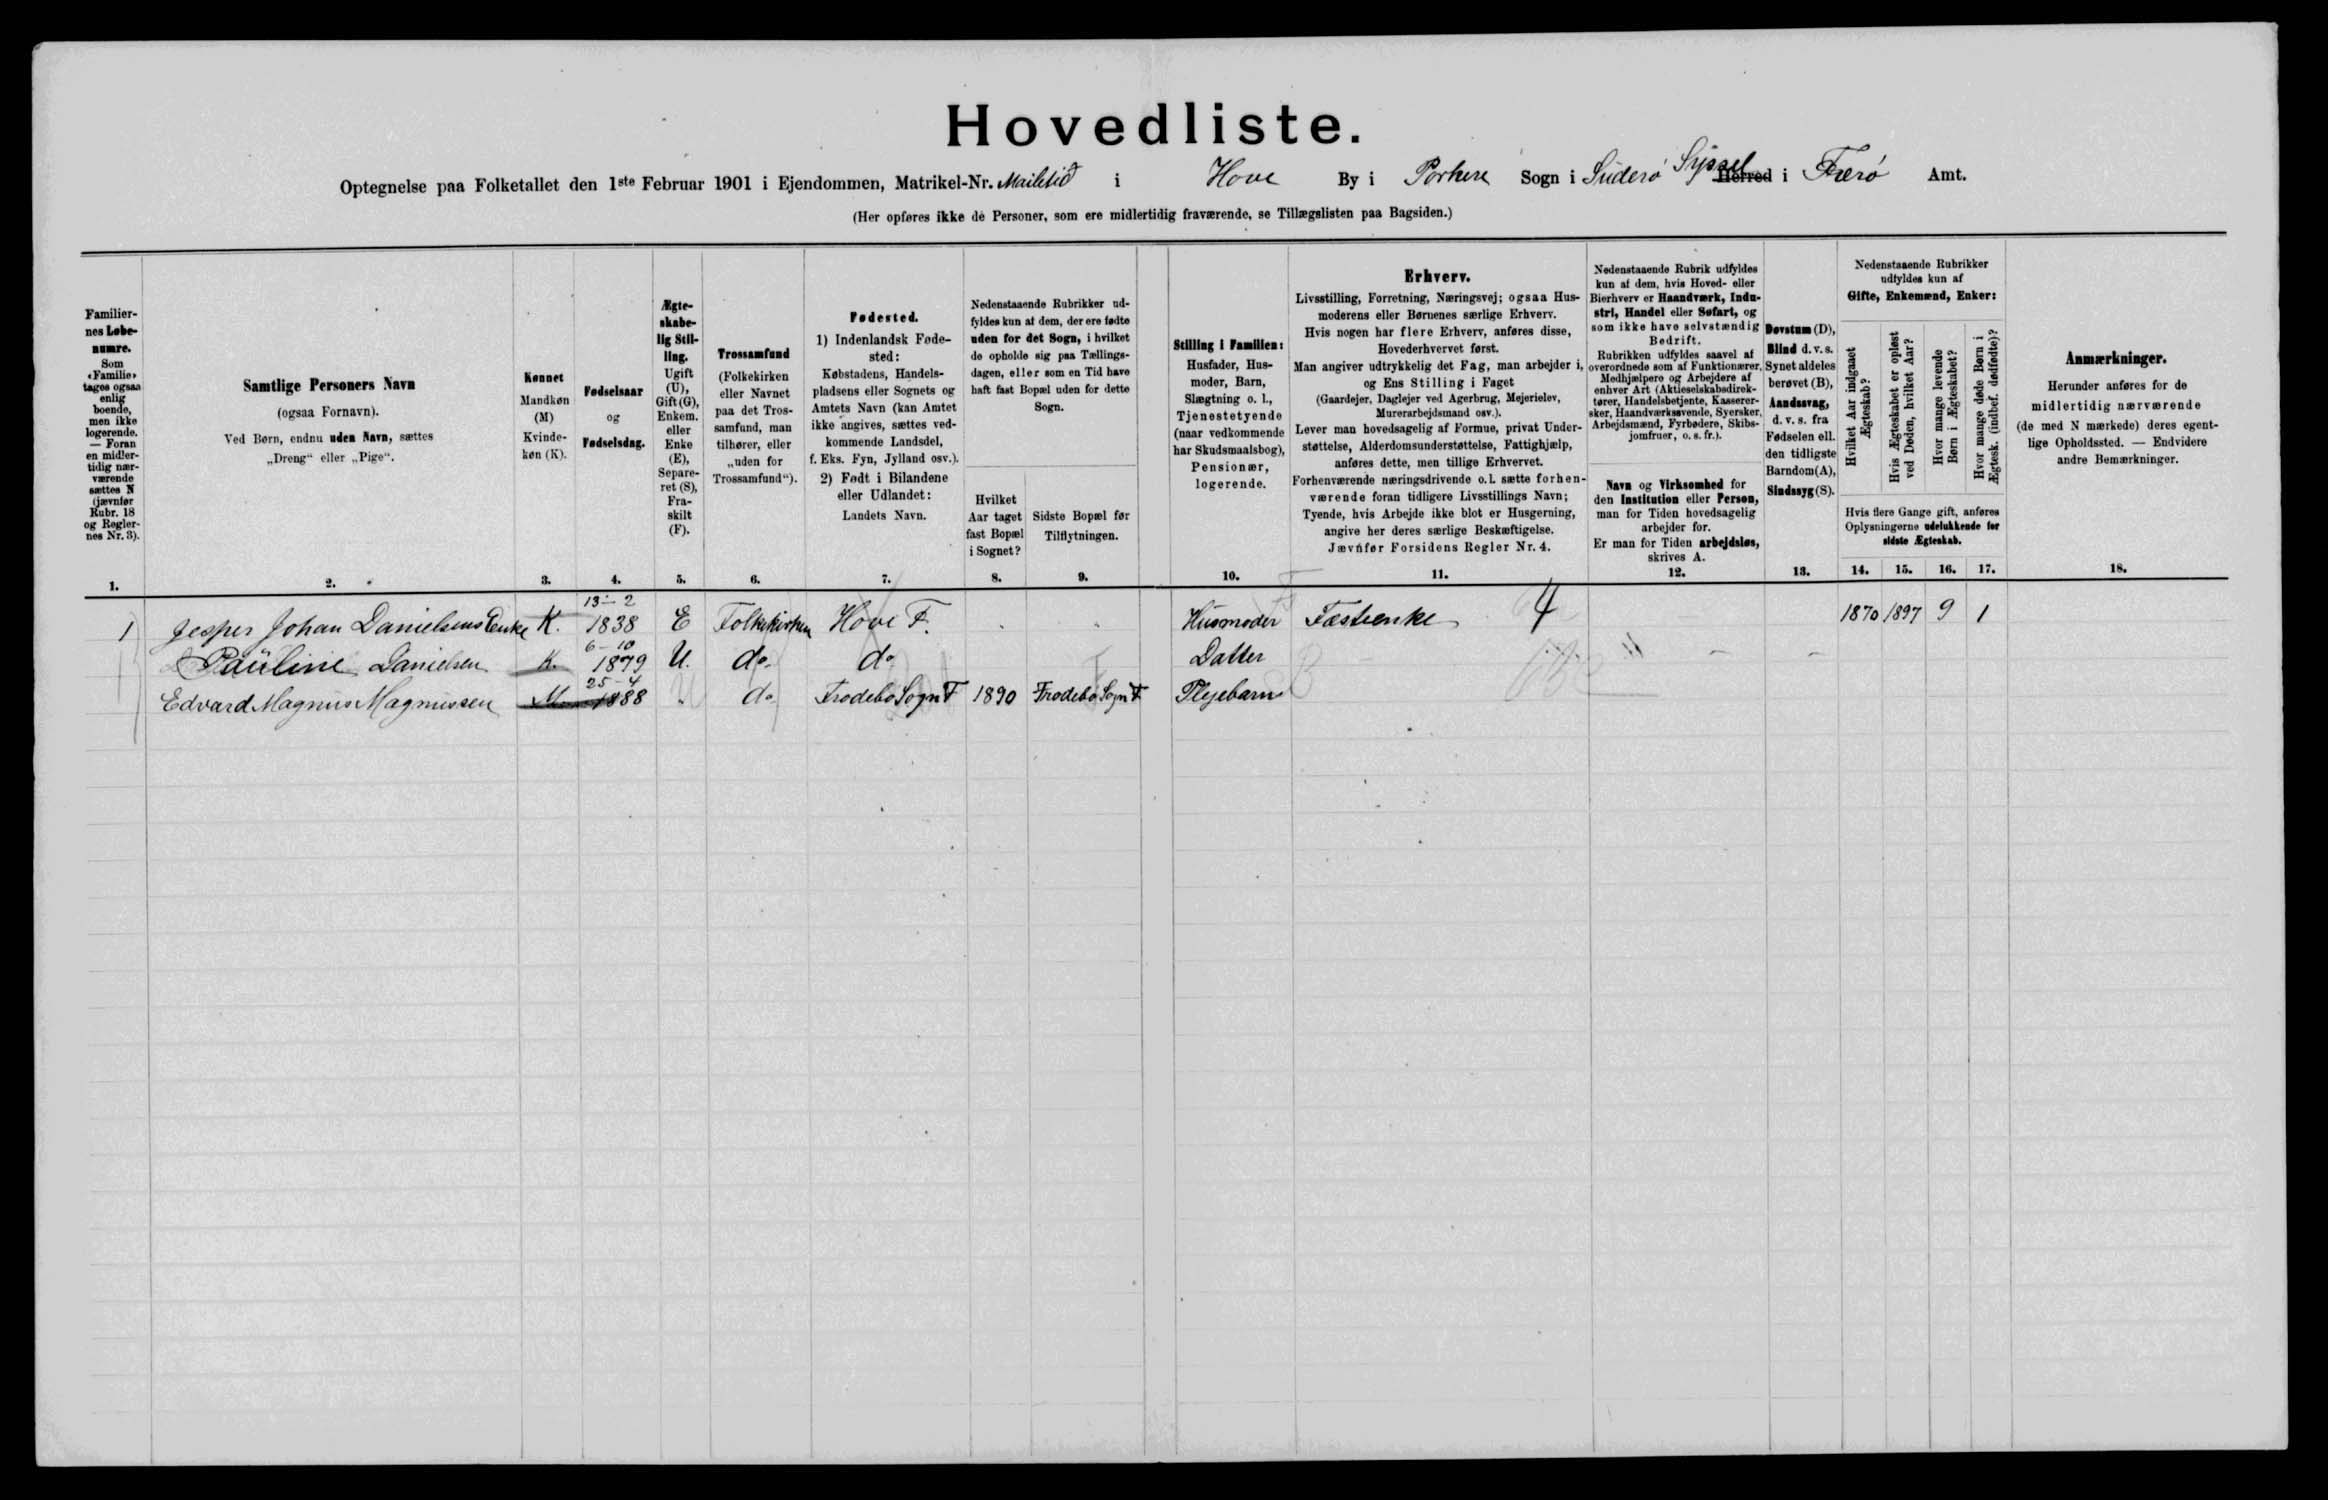 Hovedliste.
Optegnelse paa Folketallet den 1ste Februar 1901 i Ejendommen, Matrikel-Nr. i Hove By i Porkere Sogn i Suderø Syssel Herred i Færø Amt.
(Her opføres ikke de Personer, som ere midlertidig fraværende, se Tillægslisten paa Bagsiden.)
Familiernes Løbenumre.
Som «Familie» tages ogsaa enlig boende, men ikke logerende. — Foran en midlertidig nærværende sættes N (jævnfør Rubr. 18 og Reglernes Nr. 3).
1.
Samtlige Personers Navn
(ogsaa Fornavn).
Ved Børn, endnu uden Navn, sættes
„Dreng“ eller „Pige“.
2.
Kønnet
Mandkøn (M)
Kvindekøn (K).
3.
Fødselsaar
og
Fødselsdag.
4.
Ægteskabelig Stilling.
Ugift (U), Gift (G), Enkem. eller Enke (E), Separeret (S), Fraskilt (F).
5.
Trossamfund
(Folkekirken eller Navnet paa det Trossamfund, man tilhører, eller „uden for Trossamfund“).
6.
Fødested.
1) Indenlandsk Fødested:
Købstadens, Handelspladsens eller Sognets og Amtets Navn (kan Amtet ikke angives, sættes vedkommende Landsdel, f. Eks. Fyn, Jylland osv.).
2) Født i Bilandene eller Udlandet:
Landets Navn.
7.
Nedenstaaende Rubrikker udfyldes kun af dem, der ere fødte uden for det Sogn, i hvilket de opholde sig paa Tællingsdagen, eller som en Tid have haft fast Bopæl uden for dette Sogn.
Hvilket Aar taget fast Bopæl i Sognet?
8.
Sidste Bopæl før Tilflytningen.
9.
Stilling i Familien:
Husfader, Husmoder, Barn, Slægtning o. l., Tjenestetyende (naar vedkommende har Skudsmaalsbog), Pensionær, logerende.
10.
Erhverv.
Livsstilling, Forretning, Næringsvej; ogsaa Husmoderens eller Børnenes særlige Erhverv.
Hvis nogen har flere Erhverv, anføres disse, Hovederhvervet først.
Man angiver udtrykkelig det Fag, man arbejder i, og Ens Stilling i Faget
(Gaardejer, Daglejer ved Agerbrug, Mejerielev, Murerarbejdsmand osv.).
Lever man hovedsagelig af Formue, privat Understøttelse, Alderdomsunderstøttelse, Fattighjælp, anføres dette, men tillige Erhvervet.
Forhenværende næringsdrivende o. l. sætte forhenværende foran tidligere Livsstillings Navn;
Tyende, hvis Arbejde ikke blot er Husgerning, angive her deres særlige Beskæftigelse.
Jævnfør Forsidens Regler Nr. 4.
11.
Nedenstaaende Rubrik udfyldes kun af dem, hvis Hoved- eller Bierhverv er Haandværk, Industri, Handel eller Søfart, og som ikke have selvstændig Bedrift.
Rubrikken udfyldes saavel af overordnede som af Funktionærer, Medhjælpere og Arbejdere af enhver Art (Aktieselskabsdirektører, Handelsbetjente, Kasserersker, Haandværkssvende, Syersker, Arbejdsmænd, Fyrbødere, Skibsjomfruer, o. s. fr.).
Navn og Virksomhed for den Institution eller Person, man for Tiden hovedsagelig arbejder for.
Er man for Tiden arbejdsløs, skrives A.
12.
Døvstum (D), Blind d. v. s. Synet aldeles berøvet (B), Aandssvag, d. v. s. fra Fødselen ell. den tidligste Barndom (A), Sindssyg (S).
13.
Nedenstaaende Rubrikker udfyldes kun af
Gifte, Enkemænd, Enker:
Hvilket Aar indgaaet Ægteskab?
Hvis Ægteskabet er opløst ved Døden, hvilket Aar?
Hvor mange levende Børn i Ægteskabet?
Hvor mange døde Børn i Ægtesk. (indbef. dødfødte)?
Hvis flere Gange gift, anføres Oplysningerne udelukkende for sidste Ægteskab.
14. 15. 16. 17.
Anmærkninger.
Herunder anføres for de midlertidig nærværende (de med N mærkede) deres egentlige Opholdssted. — Endvidere andre Bemærkninger.
18.
1 Jesper Johan Danielsens Enke K. 13-2 1838 E Folkekirken Hove F. Husmoder Fæstenke 4 1870 1897 9 1
Pauline Danielsen K. 6-10 1879 U. do. do Datter
Edvard Magnus Magnussen M 25-4 1888 do. Frodebo Sogn F 1890 Frodebo Sogn F Plejebarn